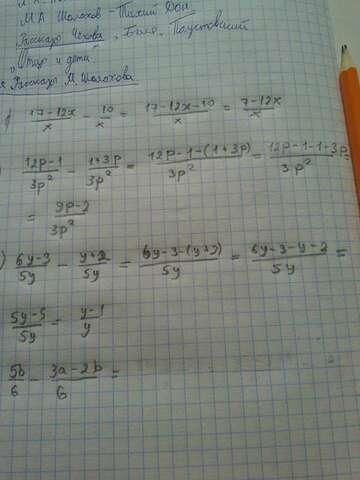 М А Шолохов - Тихий Дон.
Рассказы Чехова, Паустовский
и дети"
Рассказы М. Шолохова
17-12x/x - 10/x = 17-12x-10/x = 7-12x/x
12p-1/3p² - 1+3p/3p² = 12p-1-(1+3p)/3p² = 12p-1-1-3p/3p²
= 9p-2/3p²
) 6y-3/5y - y+2/5y = 6y-3-(y+2)/5y = 6y-3-y-2/5y =
5y-5/5y = y-1/y
5b/6 - 3a-2b/6 =